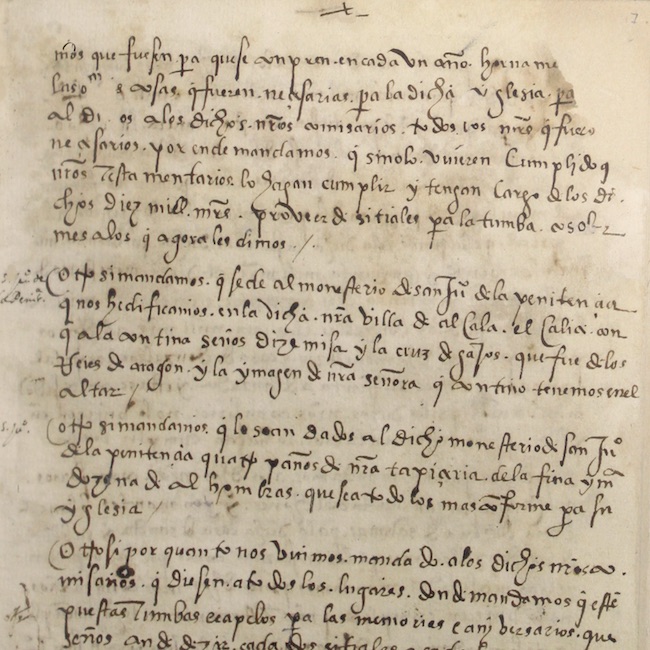 mrōs que fuesen pa que se conpren en cada vn año. hornam
s cosas q fueren necesarias pa la dicha yglesia. pa
al di os a les dichos nrōs comisarios. todos los mrs q fuerō
necesarios. por ende mandamos. q si no lo. vuieren Cumplido q
nrōs Testamentarios lo hagan cumplir y tengan Cargo de los di.
chos diez mill. mrs. proveer de sitiales pa la tumba.
mes a los q agora les dimos. /.
Otro si mandamos. q se de al monesterio de san Juº de la penitencia
q nos hedificamos. en la dicha. nrā villa de alcala. el Caliz. con
q a la contina se nos dize misa y la cruz de gajos. que fue de los
Reies de aragon. y la ymagen de nrā señora q contino tenemos en el
altar /
Otro si mandamos. q le sean dados al dicho monesterio de san Juº
de la penitencia quatro paños de nrā tapiçeria. de la fina y una
dozena de alhombras. que sea todo lo mas conforme pa su
yglesia /
Otro si por quanto nos vuimos. mandado. a los dichos nrōs co.
misarios. q diesen. a todos los. lugares. donde mandamos q esten
puestas Tumbas e capelos pa las memorias e aniversarios. que
se nos an de dezir. cada. dos sitiales